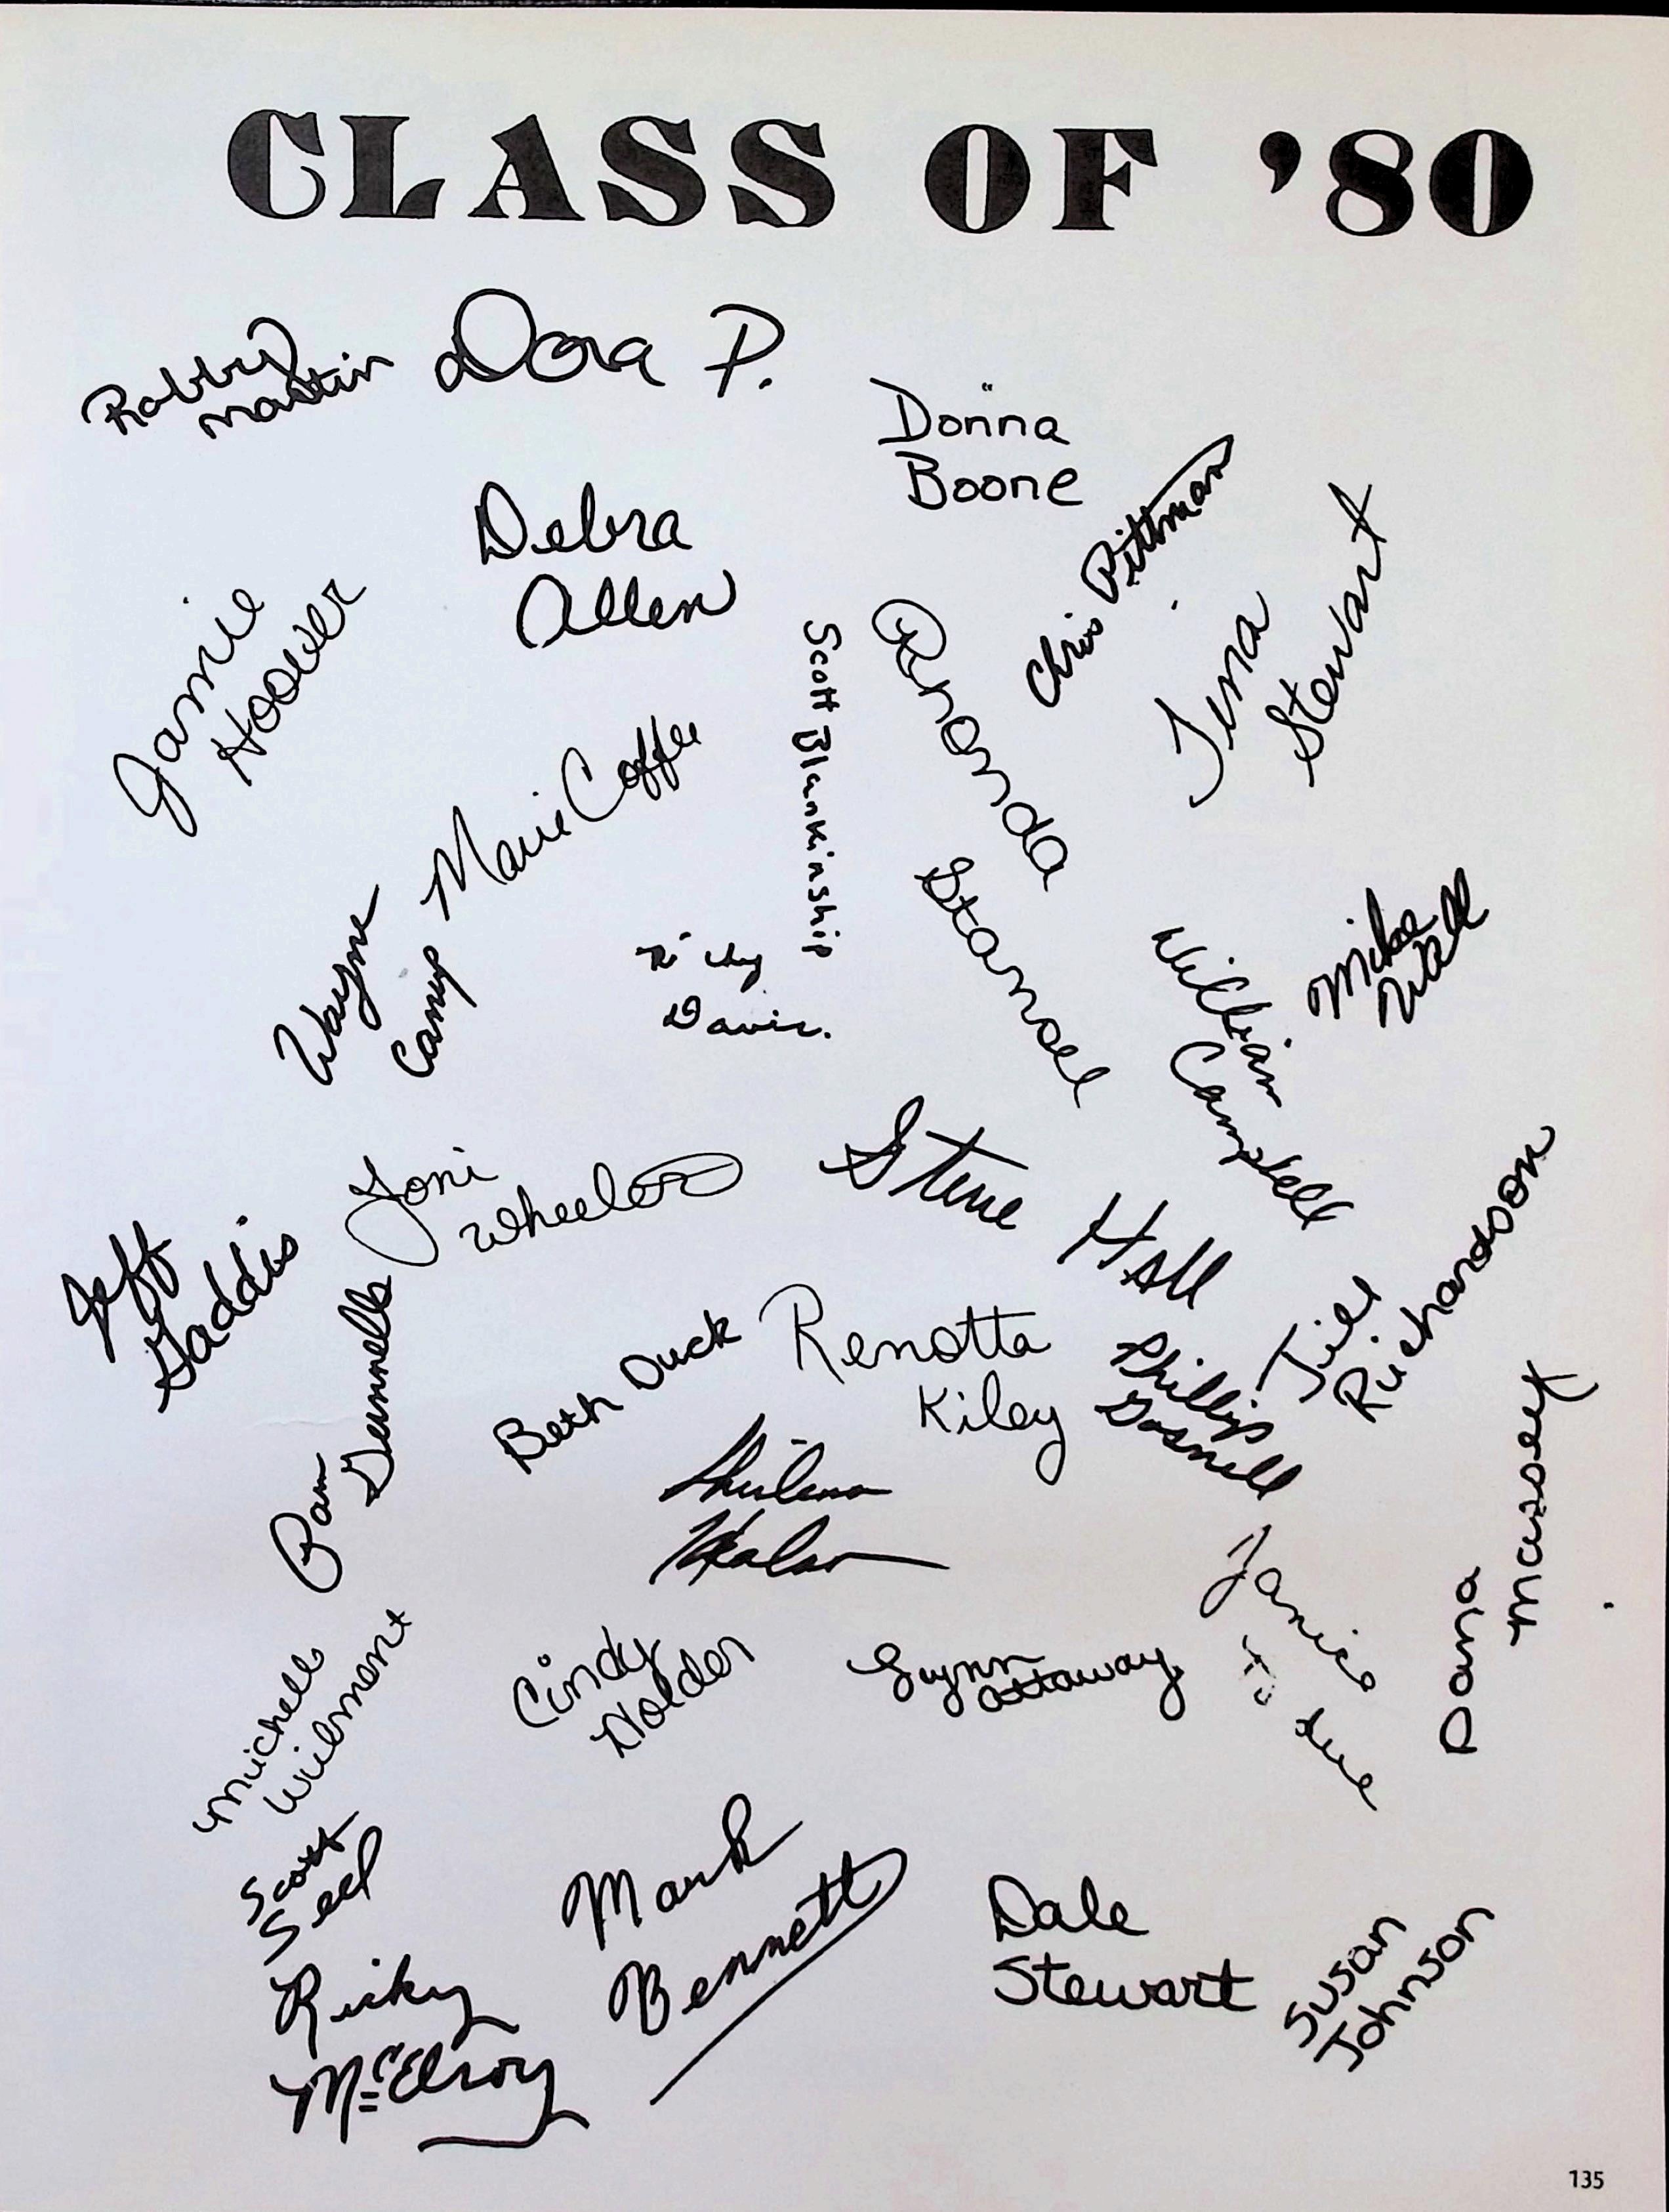 CLASS OF '80
Robby
Martin
Dora P.
Donna
Boone
Debra
Allen
Chris Pittman
Tina
Stewart
Jamie
Hoover
Scott Blankinship
Rhonda
Stansell
Marie Coffee
Wayne
Camp
Davis.
William
Campbell
Mike
Wall
Toni
Wheeler
Steve Hall
Jeff
Gaddis
Pam
Gunnells
Beth Duck
Renotta
Kiley
Phillip
Gosnell
Jill
Richardson
Dana
Massey
Janice
Michell
Cindy
Holden
Gwynn
Attaway
Scott
Seel
Mark
Bennett
Ricky
McElroy
Dale
Stewart
Susan
Johnson
135